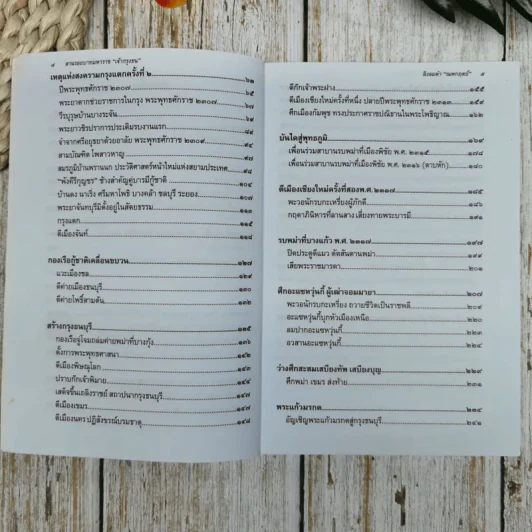 ๔ ตามรอยบาทมหาราช "เจ้ากรุงธน"
เหตุแห่งสงครามกรุงแตกครั้งที่ ๒ ๖๑
ปีพระพุทธศักราช ๒๓๐๗ ๖๕
พระยาตากช่วยราชการในกรุง พระพุทธศักราช ๒๓๐๗ ๖๗
วีรบุรุษบ้านบางระจัน ๗๙
พระยาวชิรปราการประเดิมรบงานแรก ๘๑
จำจากศรีอยุธยาด้วยอาลัย พระพุทธศักราช ๒๓๐๙ ๙๔
สามบัณฑิต โพสาวหาญ
สมรภูมิบ้านพรานนก ประวัติศาสตร์หน้าใหม่แห่งสยามประเทศ ๙๘
"พังคีรีกุญชร" ช้างสำคัญคู่บารมีกู้ชาติ ๑๐๔
บ้านดง นาเริ่ง ศรีมหาโพธิ บางคล้า ชลบุรี ระยอง ๑๐๗
พระยาจันทบุรีมิตั้งอยู่ในสัตยธรรม ๑๑๔
กรุงแตก ๑๑๕
ตีเมืองจันท์ ๑๑๘
กองเรือกู้ชาติเคลื่อนขบวน ๑๒๗
แวะเมืองชล ๑๒๙
ตีค่ายเมืองธนบุรี ๑๓๐
ตีค่ายโพธิ์สามต้น ๑๓๒
สร้างกรุงธนบุรี ๑๓๕
กองเรือจู่โจมถล่มค่ายพม่าที่บางกุ้ง ๑๓๖
ตั้งการพระพุทธศาสนา
ตีเมืองพิษณุโลก
ปราบก๊กเจ้าพิมาย ๑๔๔
เสด็จขึ้นเถลิงราชย์ สถาปนากรุงธนบุรี ๑๔๗
ตีเมืองเขมร ๑๔๗
ตีเมืองนคร ปฏิสังขรณ์บรมธาตุ ๑๔๘
สิงหะดำ "ณพกฤตธิ์" ๕
ตีก๊กเจ้าพระฝาง ๑๕๕
ตีเมืองเชียงใหม่ครั้งที่หนึ่ง ปลายปีพระพุทธศักราช ๒๓๑๓ ๑๕๙
ศึกเมืองกัมพุช ทรงประกาศราชปณิธานในพระโพธิญาณ ๑๖๒
บันไดสู่พุทธภูมิ ๑๖๙
เพื่อนร่วมสาบานรบพม่าที่เมืองพิชัย พ.ศ. ๒๓๑๕ ๑๗๘
เพื่อนร่วมสาบานรบพม่าที่เมืองพิชัย พ.ศ. ๒๓๑๖ (ดาบหัก) ๑๘๐
ตีเมืองเชียงใหม่ครั้งที่สองพ.ศ. ๒๓๑๗ ๑๘๕
พะวอนักรบกะเหรี่ยงผู้ภักดี ๑๘๘
กฤดาภินิหารที่ลานสาง เสี่ยงทายพระบารมี ๑๙๑
รบพม่าที่บางแก้ว พ.ศ. ๒๓๑๗ ๑๙๗
ปิดประตูตีแมว ตัดสันดานพม่า ๑๙๘
เสียพระราชมารดา ๒๐๑
ศึกอะแซหวุ่นกี้ ผู้เฒ่าจอมมายา ๒๐๗
พะวอนักรบกะเหรี่ยง ถวายชีวิตเป็นราชพลี ๒๐๙
อะแซหวุ่นกี้บุกหัวเมืองเหนือ ๒๑๑
ลมปากอะแซหวุ่นกี้ ๒๒๐
อวสานอะแซหวุ่นกี้ ๒๒๔
ว่างศึกสะสมเสบียงทัพ เสบียงบุญ ๒๒๙
ศึกพม่า เขมร ส่งท้าย ๒๓๑
พระแก้วมรกต ๒๓๙
อัญเชิญพระแก้วมรกตสู่กรุงธนบุรี ๒๔๑